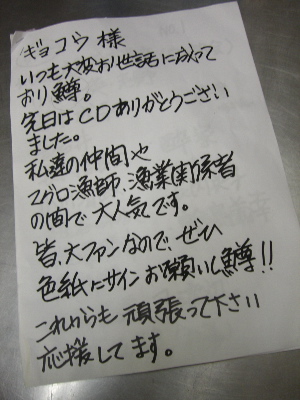 ギョコウ様
いつも大変お世話に成って
おり鱒。
先日はCDありがとうござい
ました。
私達の仲間や
マグロ漁師、漁業関係者
の間で大人気です。
皆、大ファンなので、ぜひ
色紙にサインお願いし鱒!!
これからも頑張って下さい
応援してます。